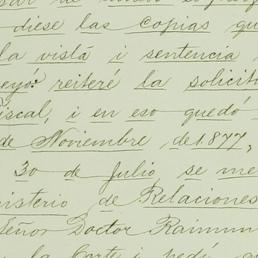 diese las copias qu
la vistá i sentencia
reiteré la solicit
iscal, i en eso quedó
de Noviembre de 1877,
30 de Julio, se me
nisterio de Relaciones
Señor Doctor Raimun
la Corte i pedí